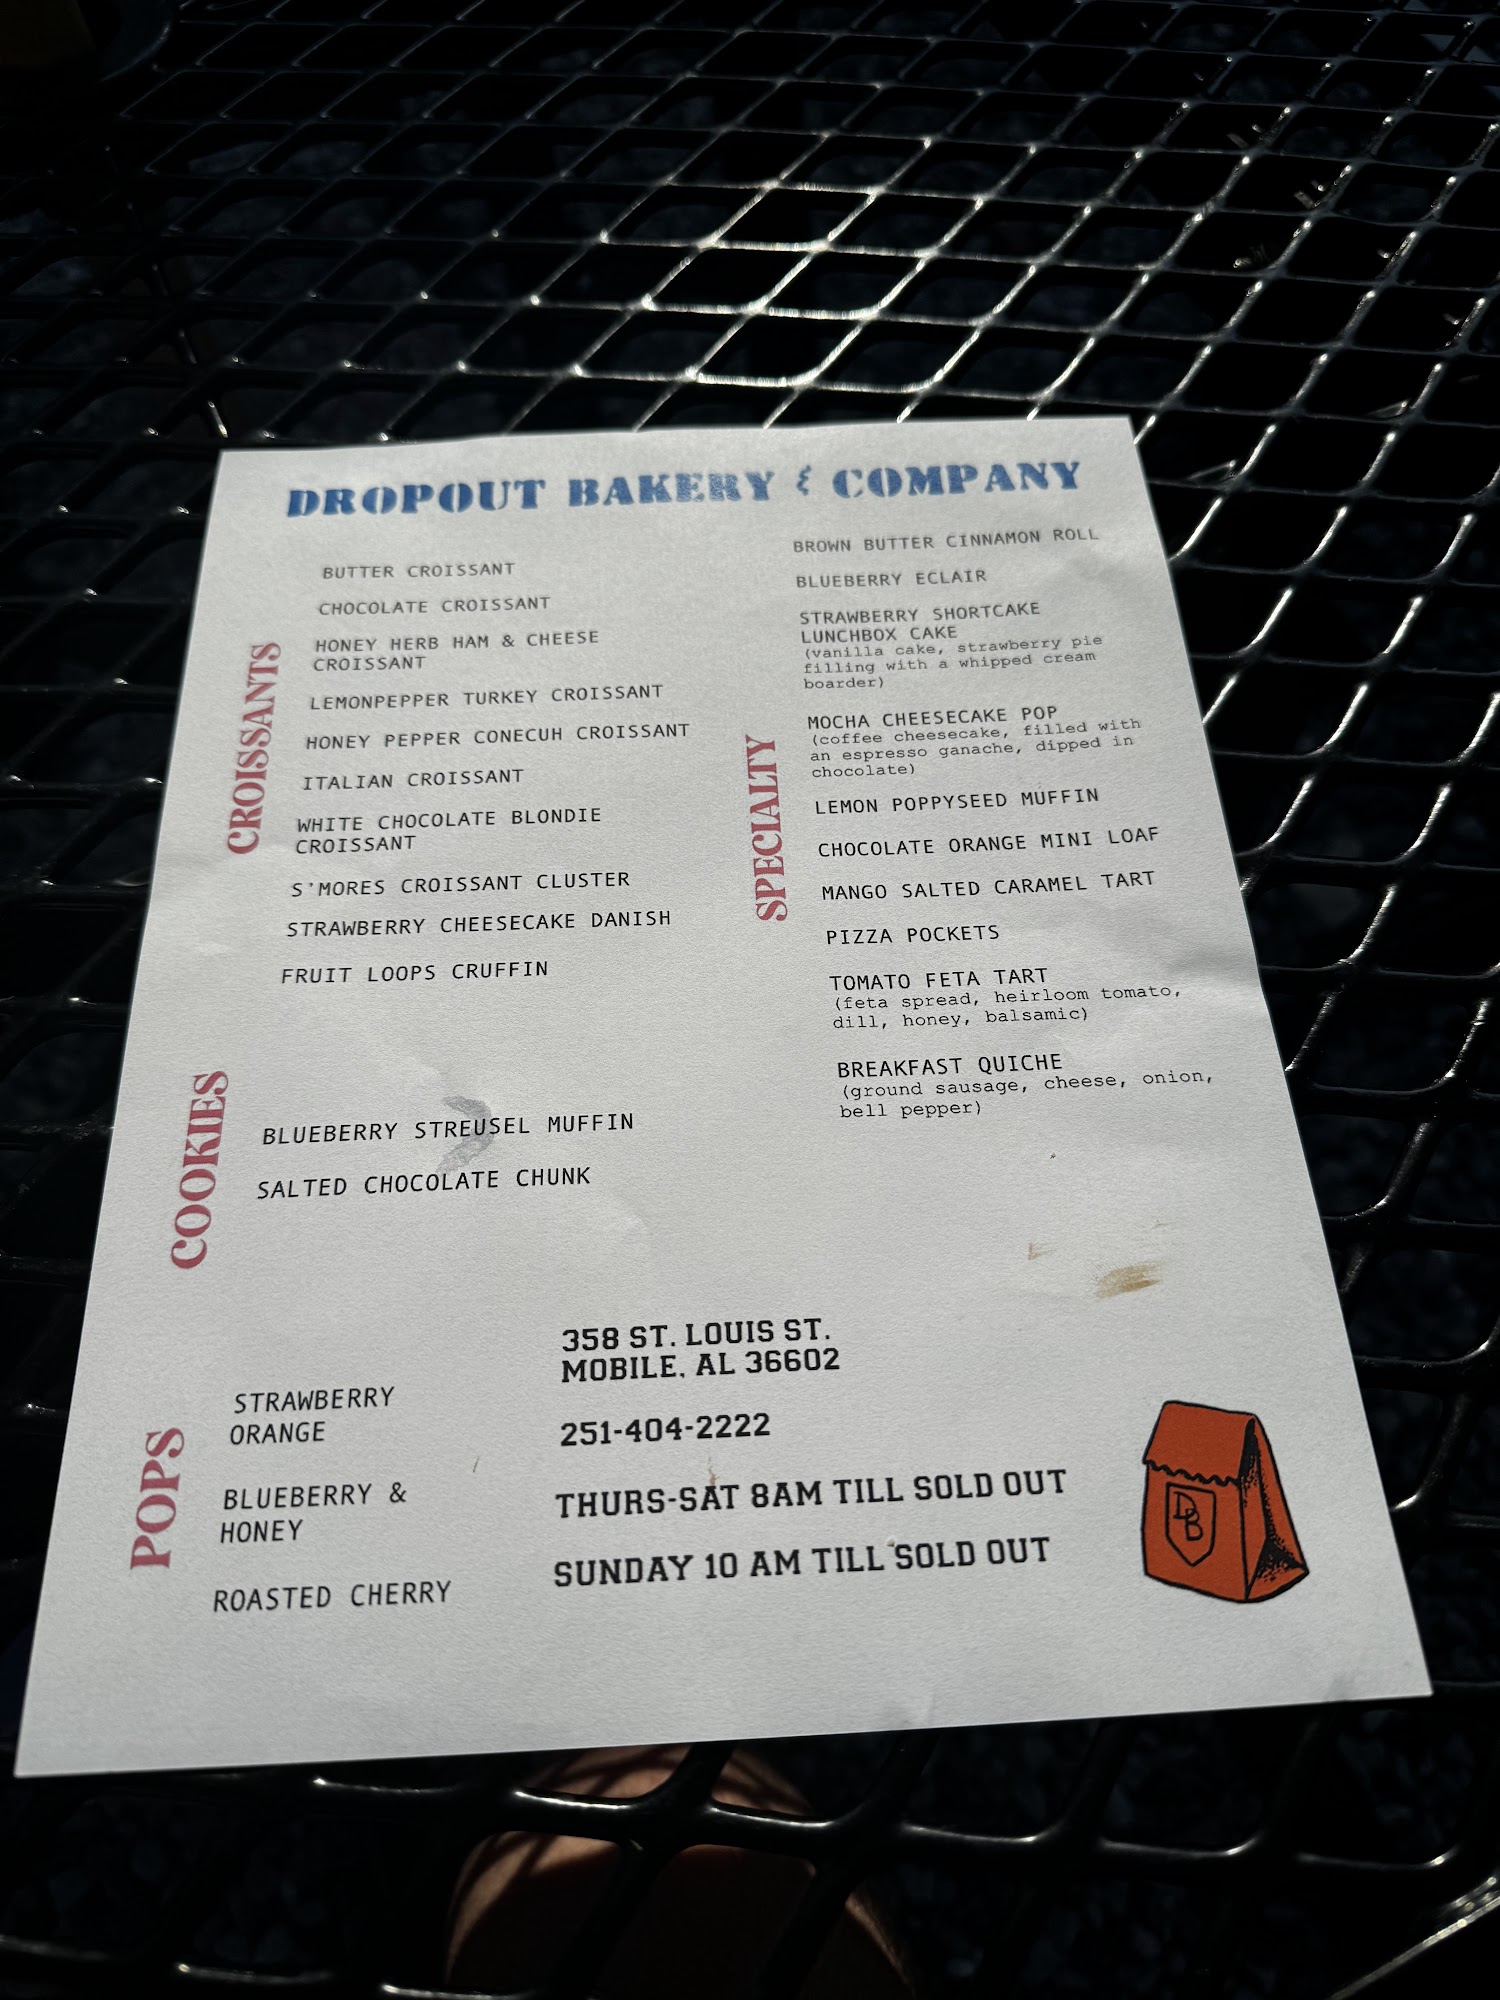 DROPOUT BAKERY & COMPANY
CROISSANTS
BUTTER CROISSANT
CHOCOLATE CROISSANT
HONEY HERB HAM & CHEESE
CROISSANT
LEMONPEPPER TURKEY CROISSANT
HONEY PEPPER CONECUH CROISSANT
ITALIAN CROISSANT
WHITE CHOCOLATE BLONDIE
CROISSANT
S'MORES CROISSANT CLUSTER
STRAWBERRY CHEESECAKE DANISH
FRUIT LOOPS CRUFFIN
COOKIES
BLUEBERRY STREUSEL MUFFIN
SALTED CHOCOLATE CHUNK
POPS
STRAWBERRY
ORANGE
BLUEBERRY &
HONEY
ROASTED CHERRY
SPECIALTY
BROWN BUTTER CINNAMON ROLL
BLUEBERRY ECLAIR
STRAWBERRY SHORTCAKE
LUNCHBOX CAKE
(vanilla cake, strawberry pie
filling with a whipped cream
boarder)
MOCHA CHEESECAKE POP
(coffee cheesecake, filled with
an espresso ganache, dipped in
chocolate)
LEMON POPPYSEED MUFFIN
CHOCOLATE ORANGE MINI LOAF
MANGO SALTED CARAMEL TART
PIZZA POCKETS
TOMATO FETA TART
(feta spread, heirloom tomato,
dill, honey, balsamic)
BREAKFAST QUICHE
(ground sausage, cheese, onion,
bell pepper)
358 ST. LOUIS ST.
MOBILE, AL 36602
251-404-2222
THURS-SAT 8AM TILL SOLD OUT
SUNDAY 10 AM TILL SOLD OUT
DB